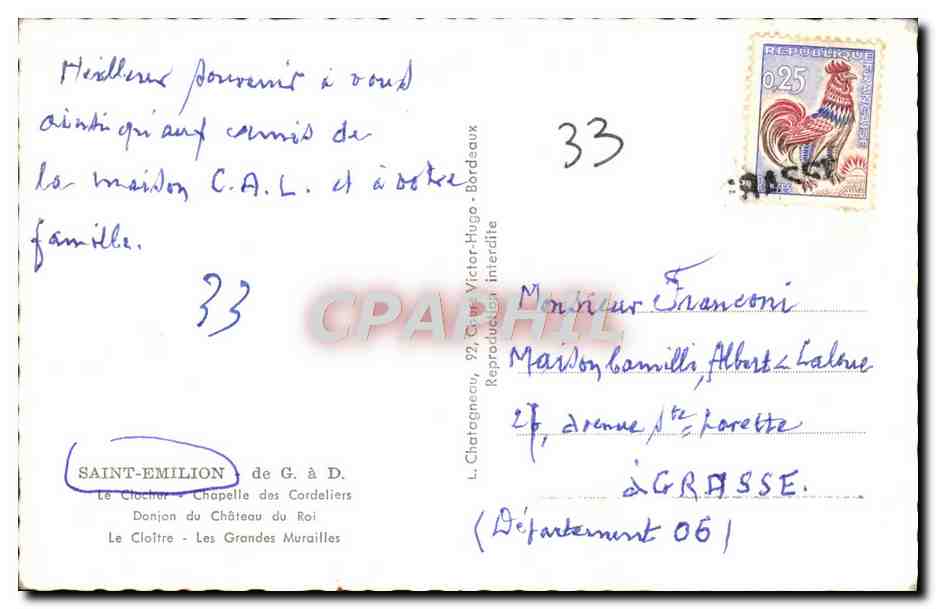 Meilleur souvenir à vous
ainsi qu'aux camis de
la maison C.A.L. et à votre
famille.
33
SAINT-EMILION - de G. à D.
Le Clocher - Chapelle des Cordeliers
Donjon du Château du Roi
Le Cloître - Les Grandes Murailles
L. Chatagneau, 92, Cours Victor-Hugo - Bordeaux
Reproduction interdite
CPAPHIL
33
REPUBLIQUE FRANÇAISE
0,25
RASSE
Monsieur Franconi
Maison Camilli, Albert - Laloue
27, avenue Ste- Lorette
à GRASSE.
(Département 06)